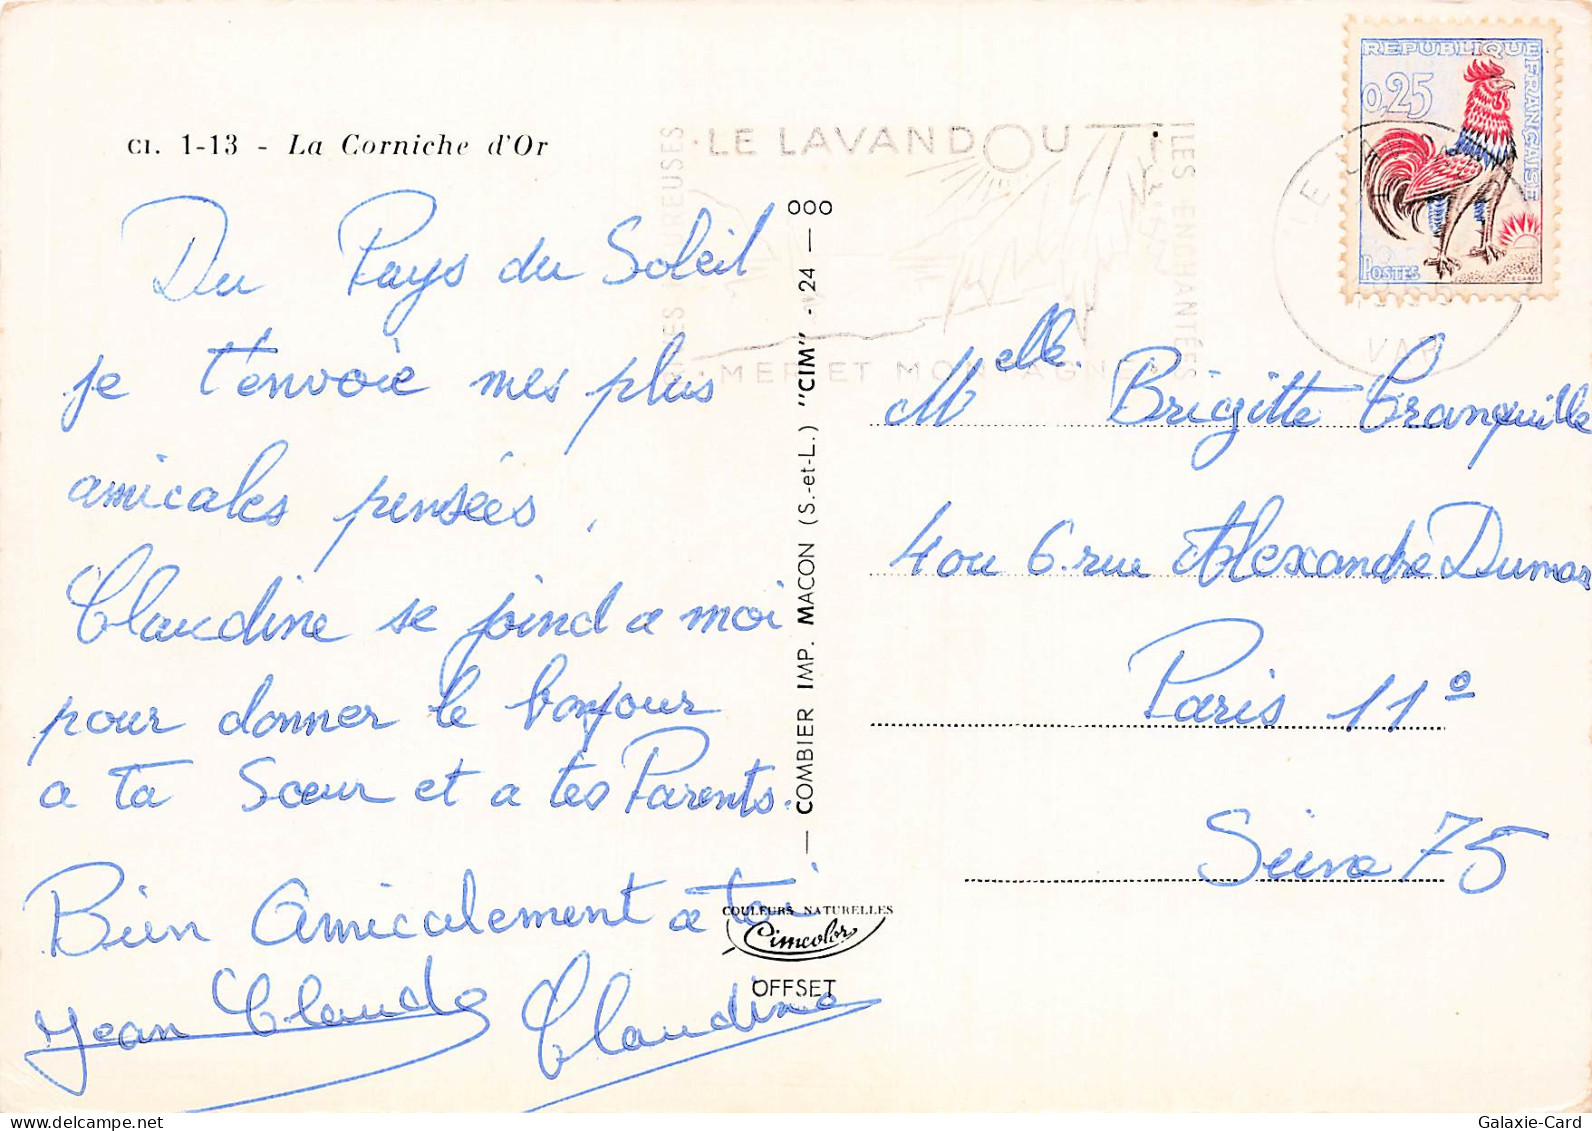 CI. 1-13 - La Corniche d'Or
Du Pays du Soleil
je t'envoie mes plus
amicales pensées.
Claudine se joind a moi
pour donner le bonjour
a ta Sœur et a tes Parents.
Bien Amicalement a toi
Jean Claude Claudine
— COMBIER IMP. MACON (S.-et-L.) "CIM" - 24 — OOO
COULEURS NATURELLES
Cimcolor
OFFSET
LE LAVANDOU
ILES ENCHANTÉES
MER ET MONTAGNES
REPUBLIQUE FRANÇAISE
0,25
POSTES
VAR
Melle. Brigitte Tranquille
4 ou 6. rue Alexandre Dumas
Paris 11º
Seine 75
Galaxie-Card
www.delcampe.net